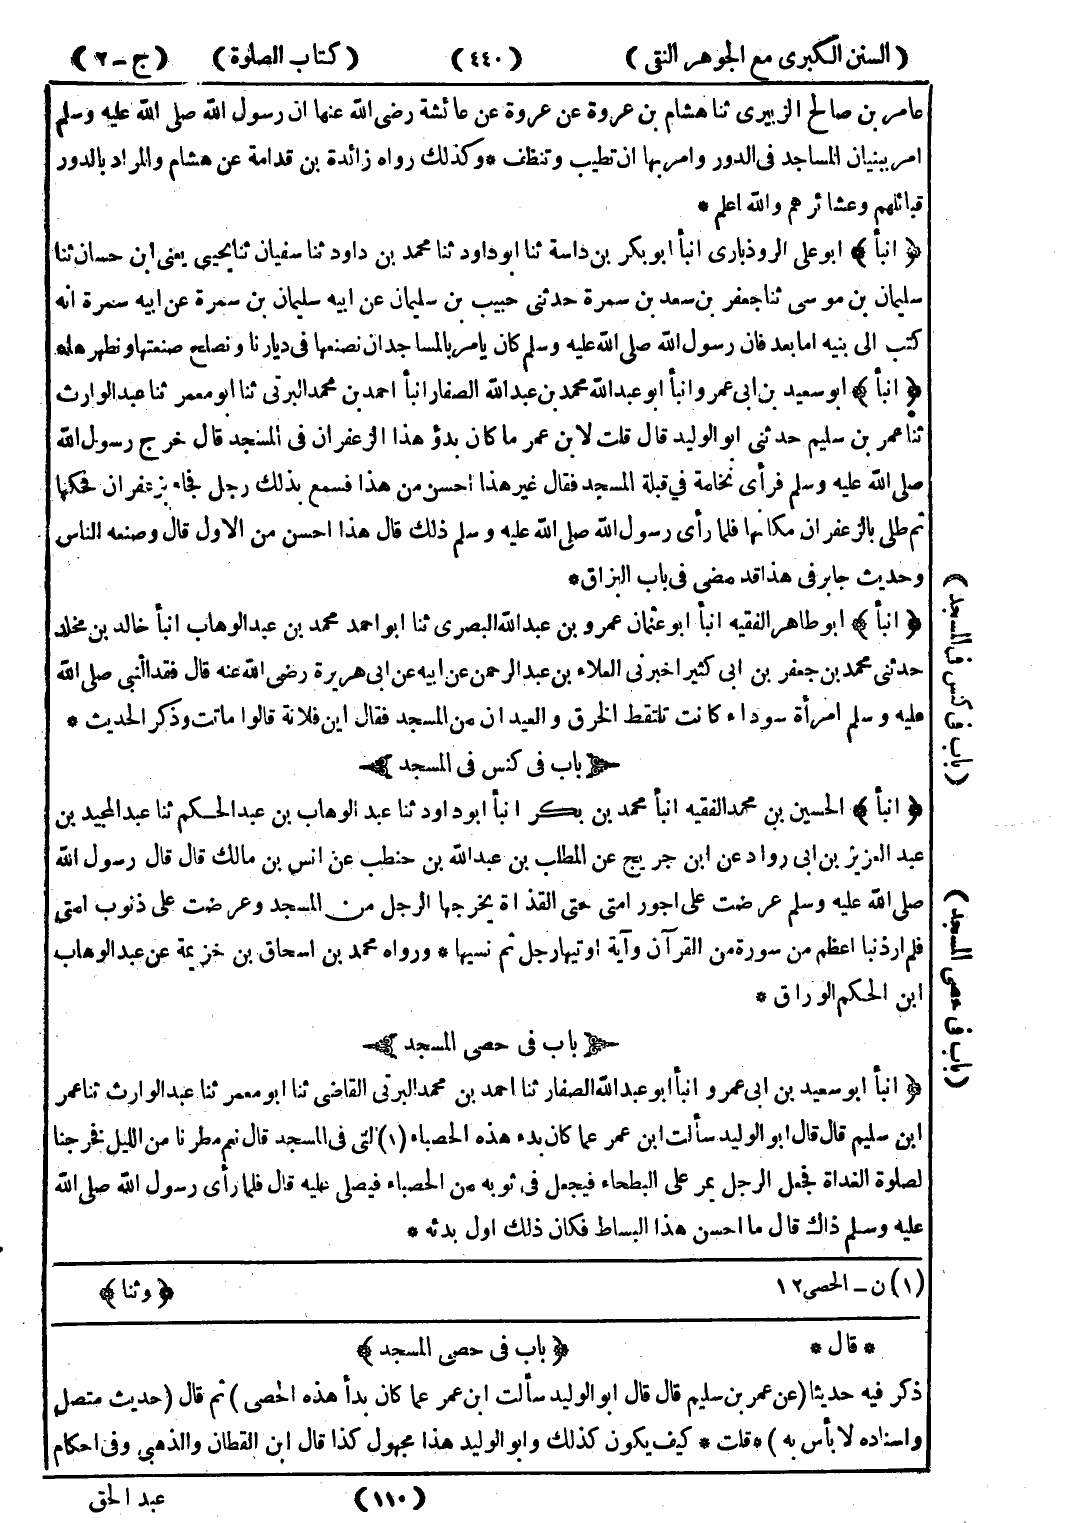 ( السنن الكبرى مع الجوهر النقى ) ( ٤٤٠ ) ( كتاب الصلوة ) ( ج - ٢ )
عامر بن صالح الزبيرى ثنا هشام بن عروة عن عروة عن عائشة رضى الله عنها ان رسول الله صلى الله عليه وسلم
امر ببنيان المساجد فى الدور وامر بها ان تطيب وتنظف * وكذلك رواه زائدة بن قدامة عن هشام والمراد بالدور
قبائلهم وعشائرهم والله اعلم *
﴿ انبأ ﴾ ابو على الروذبارى انبأ ابو بكر بن داسة ثنا ابو داود ثنا محمد بن داود ثنا سفيان ثنا يحيى يعنى ابن حسان ثنا
سليمان بن موسى ثنا جعفر بن سعد بن سمرة حدثنى حبيب بن سليمان عن ابيه سليمان بن سمرة عن ابيه سمرة انه
كتب الى بنيه اما بعد فان رسول الله صلى الله عليه وسلم كان يامر بالمساجد ان نصنعها فى ديارنا ونصلح صنعتها ونطهرها *
﴿ انبأ ﴾ ابو سعيد بن ابى عمر و انبأ ابو عبد الله محمد بن عبد الله الصفار انبأ احمد بن محمد البرتى ثنا ابو معمر ثنا عبد الوارث
ثنا عمر بن سليم حدثنى ابو الوليد قال قلت لابن عمر ما كان بدؤ هذا الزعفران فى المسجد قال خرج رسول الله
صلى الله عليه وسلم فرأى نخامة في قبلة المسجد فقال غير هذا احسن من هذا فسمع بذلك رجل فجاء بزعفران فحكها
ثم طلى بالزعفران مكانها فلما رأى رسول الله صلى الله عليه وسلم ذلك قال هذا احسن من الاول قال وصنعه الناس
وحديث جابر فى هذا قد مضى فى باب البزاق *
﴿ انبأ ﴾ ابو طاهر الفقيه انبأ ابو عثمان عمرو بن عبد الله البصرى ثنا ابو احمد محمد بن عبد الوهاب انبأ خالد بن مخلد
حدثنى محمد بن جعفر بن ابى كثير اخبرنى العلاء بن عبد الرحمن عن ابيه عن ابى هريرة رضى الله عنه قال فقد النبي صلى الله
عليه وسلم امرأة سوداء كانت تلتقط الخرق والعيدان من المسجد فقال اين فلانة قالوا ماتت وذكر الحديث *
﴿ باب فى كنس فى المسجد ﴾
﴿ انبأ ﴾ الحسين بن محمد الفقيه انبأ محمد بن بكر انبأ ابو داود ثنا عبد الوهاب بن عبد الحكم ثنا عبد المجيد بن
عبد العزيز بن ابى رواد عن ابن جريج عن المطلب بن عبد الله بن حنطب عن انس بن مالك قال قال رسول الله
صلى الله عليه وسلم عرضت على اجور امتى حتى القذاة يخرجها الرجل من المسجد وعرضت على ذنوب امتى
فلم ار ذنبا اعظم من سورة من القرآن وآية اوتيها رجل ثم نسيها * ورواه محمد بن اسحاق بن خزيمة عن عبد الوهاب
ابن الحكم الوراق *
﴿ باب فى حصى المسجد ﴾
﴿ انبأ ابو سعيد بن ابى عمر و انبأ ابو عبد الله الصفار ثنا احمد بن محمد البرتى القاضى ثنا ابو معمر ثنا عبد الوارث ثنا عمر
ابن سليم قال قال ابو الوليد سألت ابن عمر عما كان بدء هذه الحصباء (١) التى فى المسجد قال نعم مطرنا من الليل فخرجنا
لصلوة الغداة فجعل الرجل يمر على البطحاء فيجعل فى ثوبه من الحصباء فيصلى عليه قال فلما رأى رسول الله صلى الله
عليه وسلم ذاك قال ما احسن هذا البساط فكان ذلك اول بدئه *
( باب فى كنس فى المسجد )
( باب فى حصى المسجد )
(١) ن - الحصى ١٢ ﴿ وثنا ﴾
* قال * ﴿ باب فى حصى المسجد ﴾
ذكر فيه حديثا (عن عمر بن سليم قال قال ابو الوليد سألت ابن عمر عما كان بدأ هذه الحصى) ثم قال (حديث متصل
واسناده لا بأس به) * قلت * كيف يكون كذلك وابو الوليد هذا مجهول كذا قال ابن القطان والذهبي وفى احكام
( ١١٠ ) عبد الحق